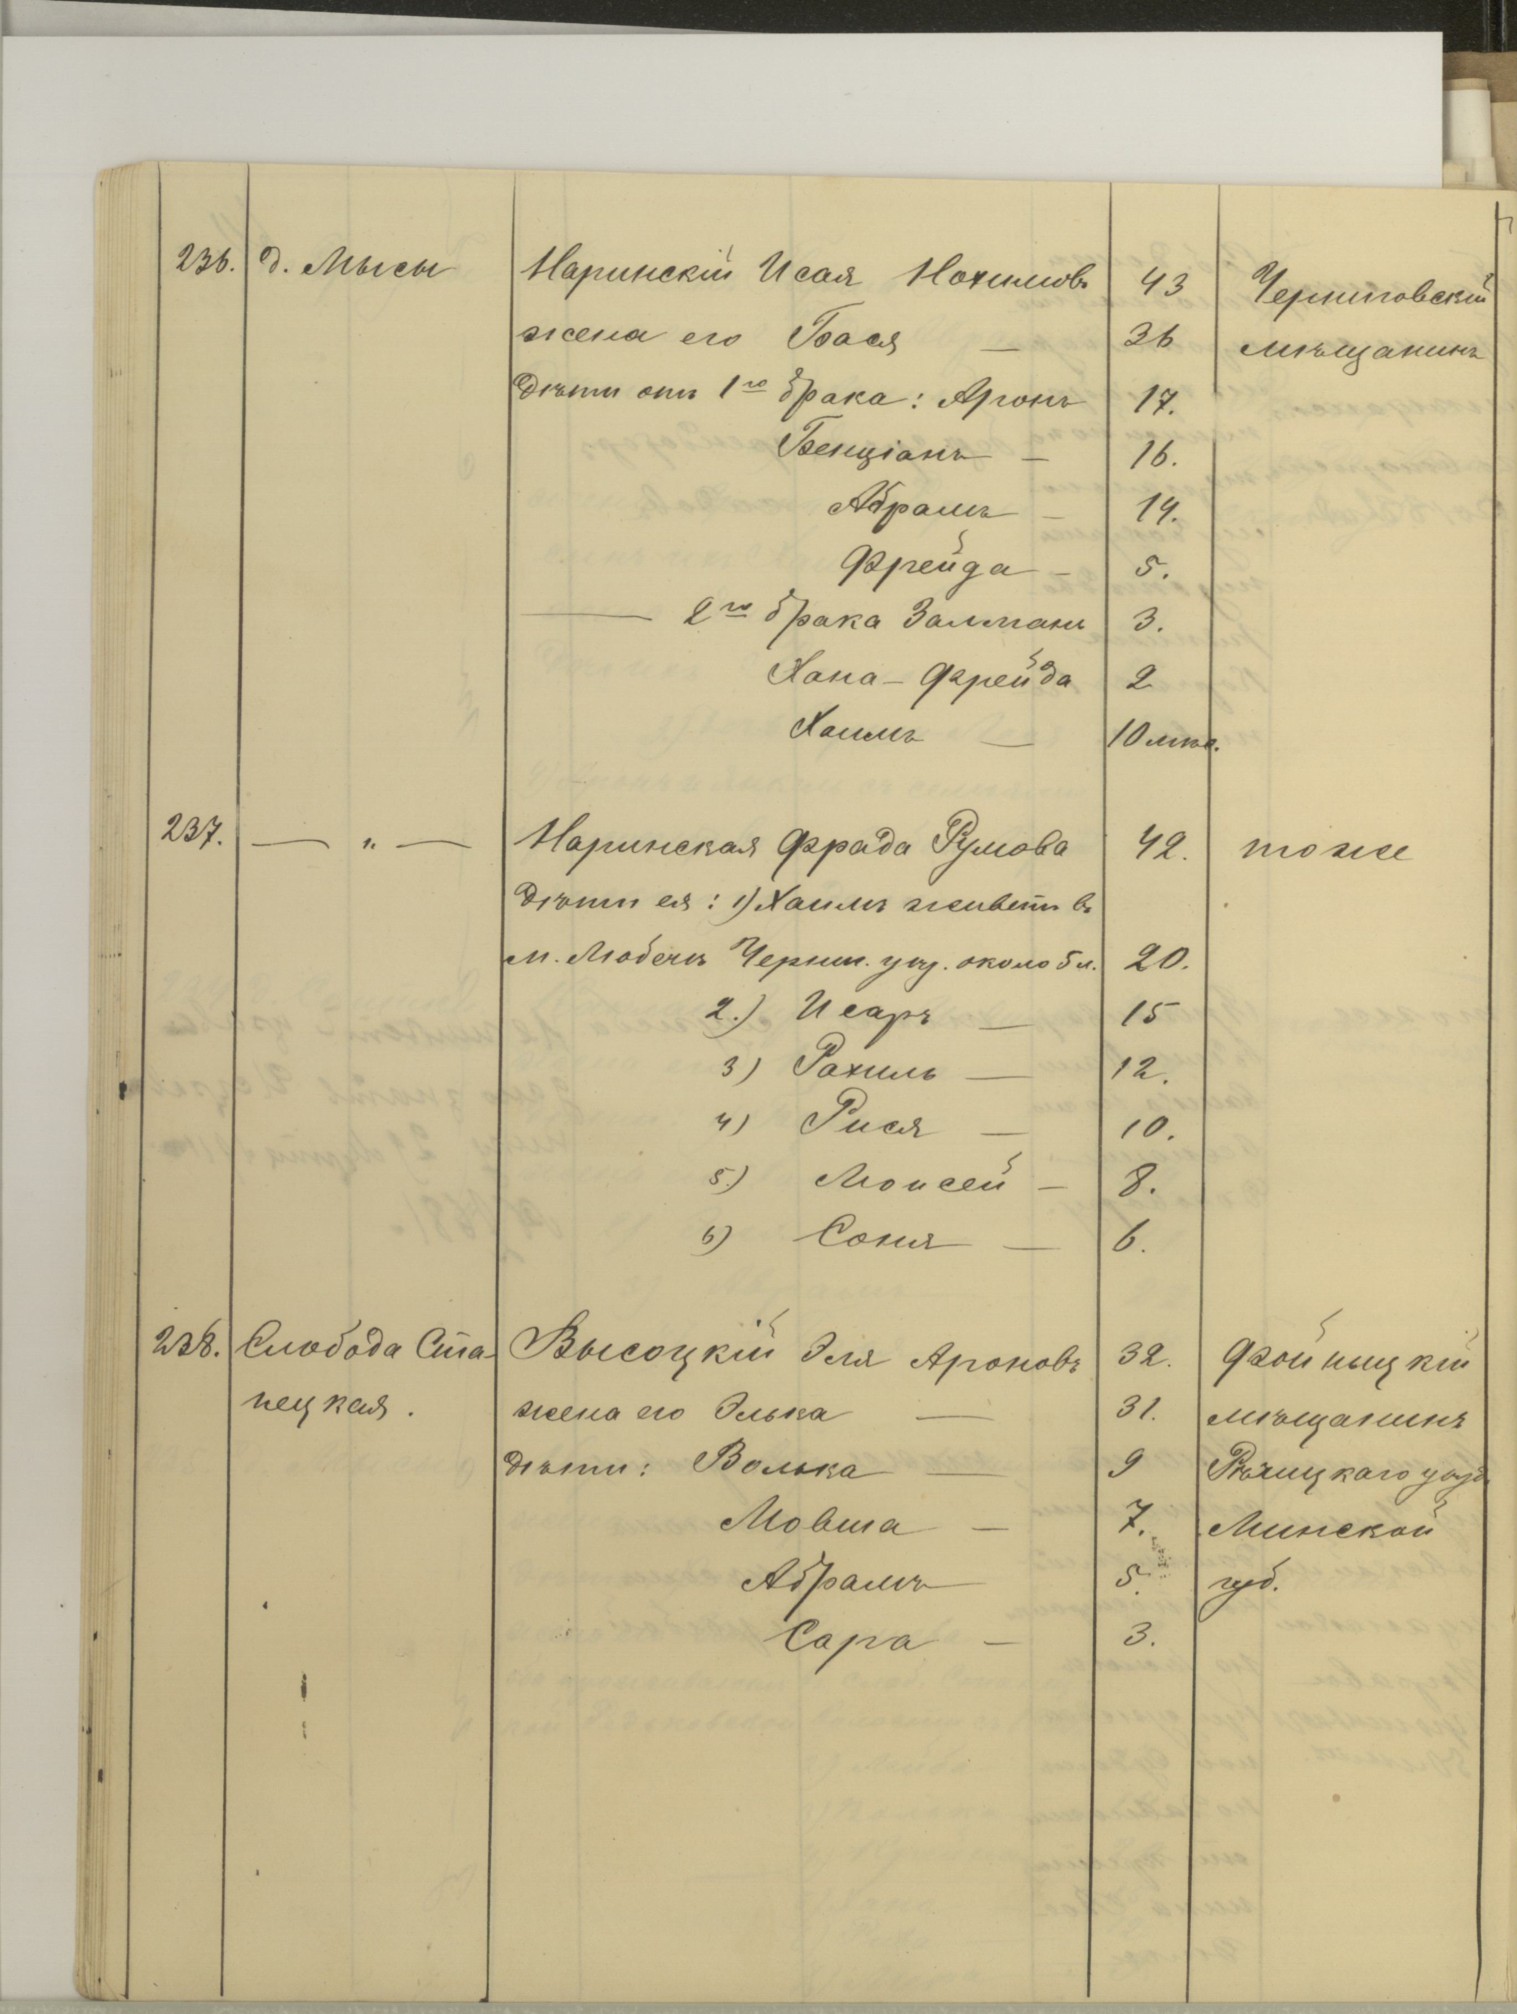 236. д. Мысы Наринскій Исая Нохимовъ 43 Черниговскій
жена его Бася — 36 мѣщанинъ
Дѣти отъ 1го брака: Аронъ 17.
Бенціанъ — 16.
Абрамъ — 14.
Фрейда — 5.
— 2го брака Залманъ 3.
Хана-Фрейда 2
Хаимъ — 10 мѣс.
237. — „ — Наринская Фрада Румова 42. тоже
Дѣти ея: 1) Хаимъ живетъ въ
м. Любечѣ Черниг. уѣз. около 5 л. 20.
2.) Исаръ — 15
3) Рахиль — 12.
4) Рися — 10.
5.) Моисей — 8.
6) Соня — 6.
238. Слобода Ста- Высоцкій Эля Ароновъ 32. Фойницкій
пецкая. жена его Элька — 31. мѣщанинъ
дѣти: Волька — 9 Рѣчицкаго уѣзд.
Мовша — 7. Минской
Абрамъ 5. губ.
Сара — 3.